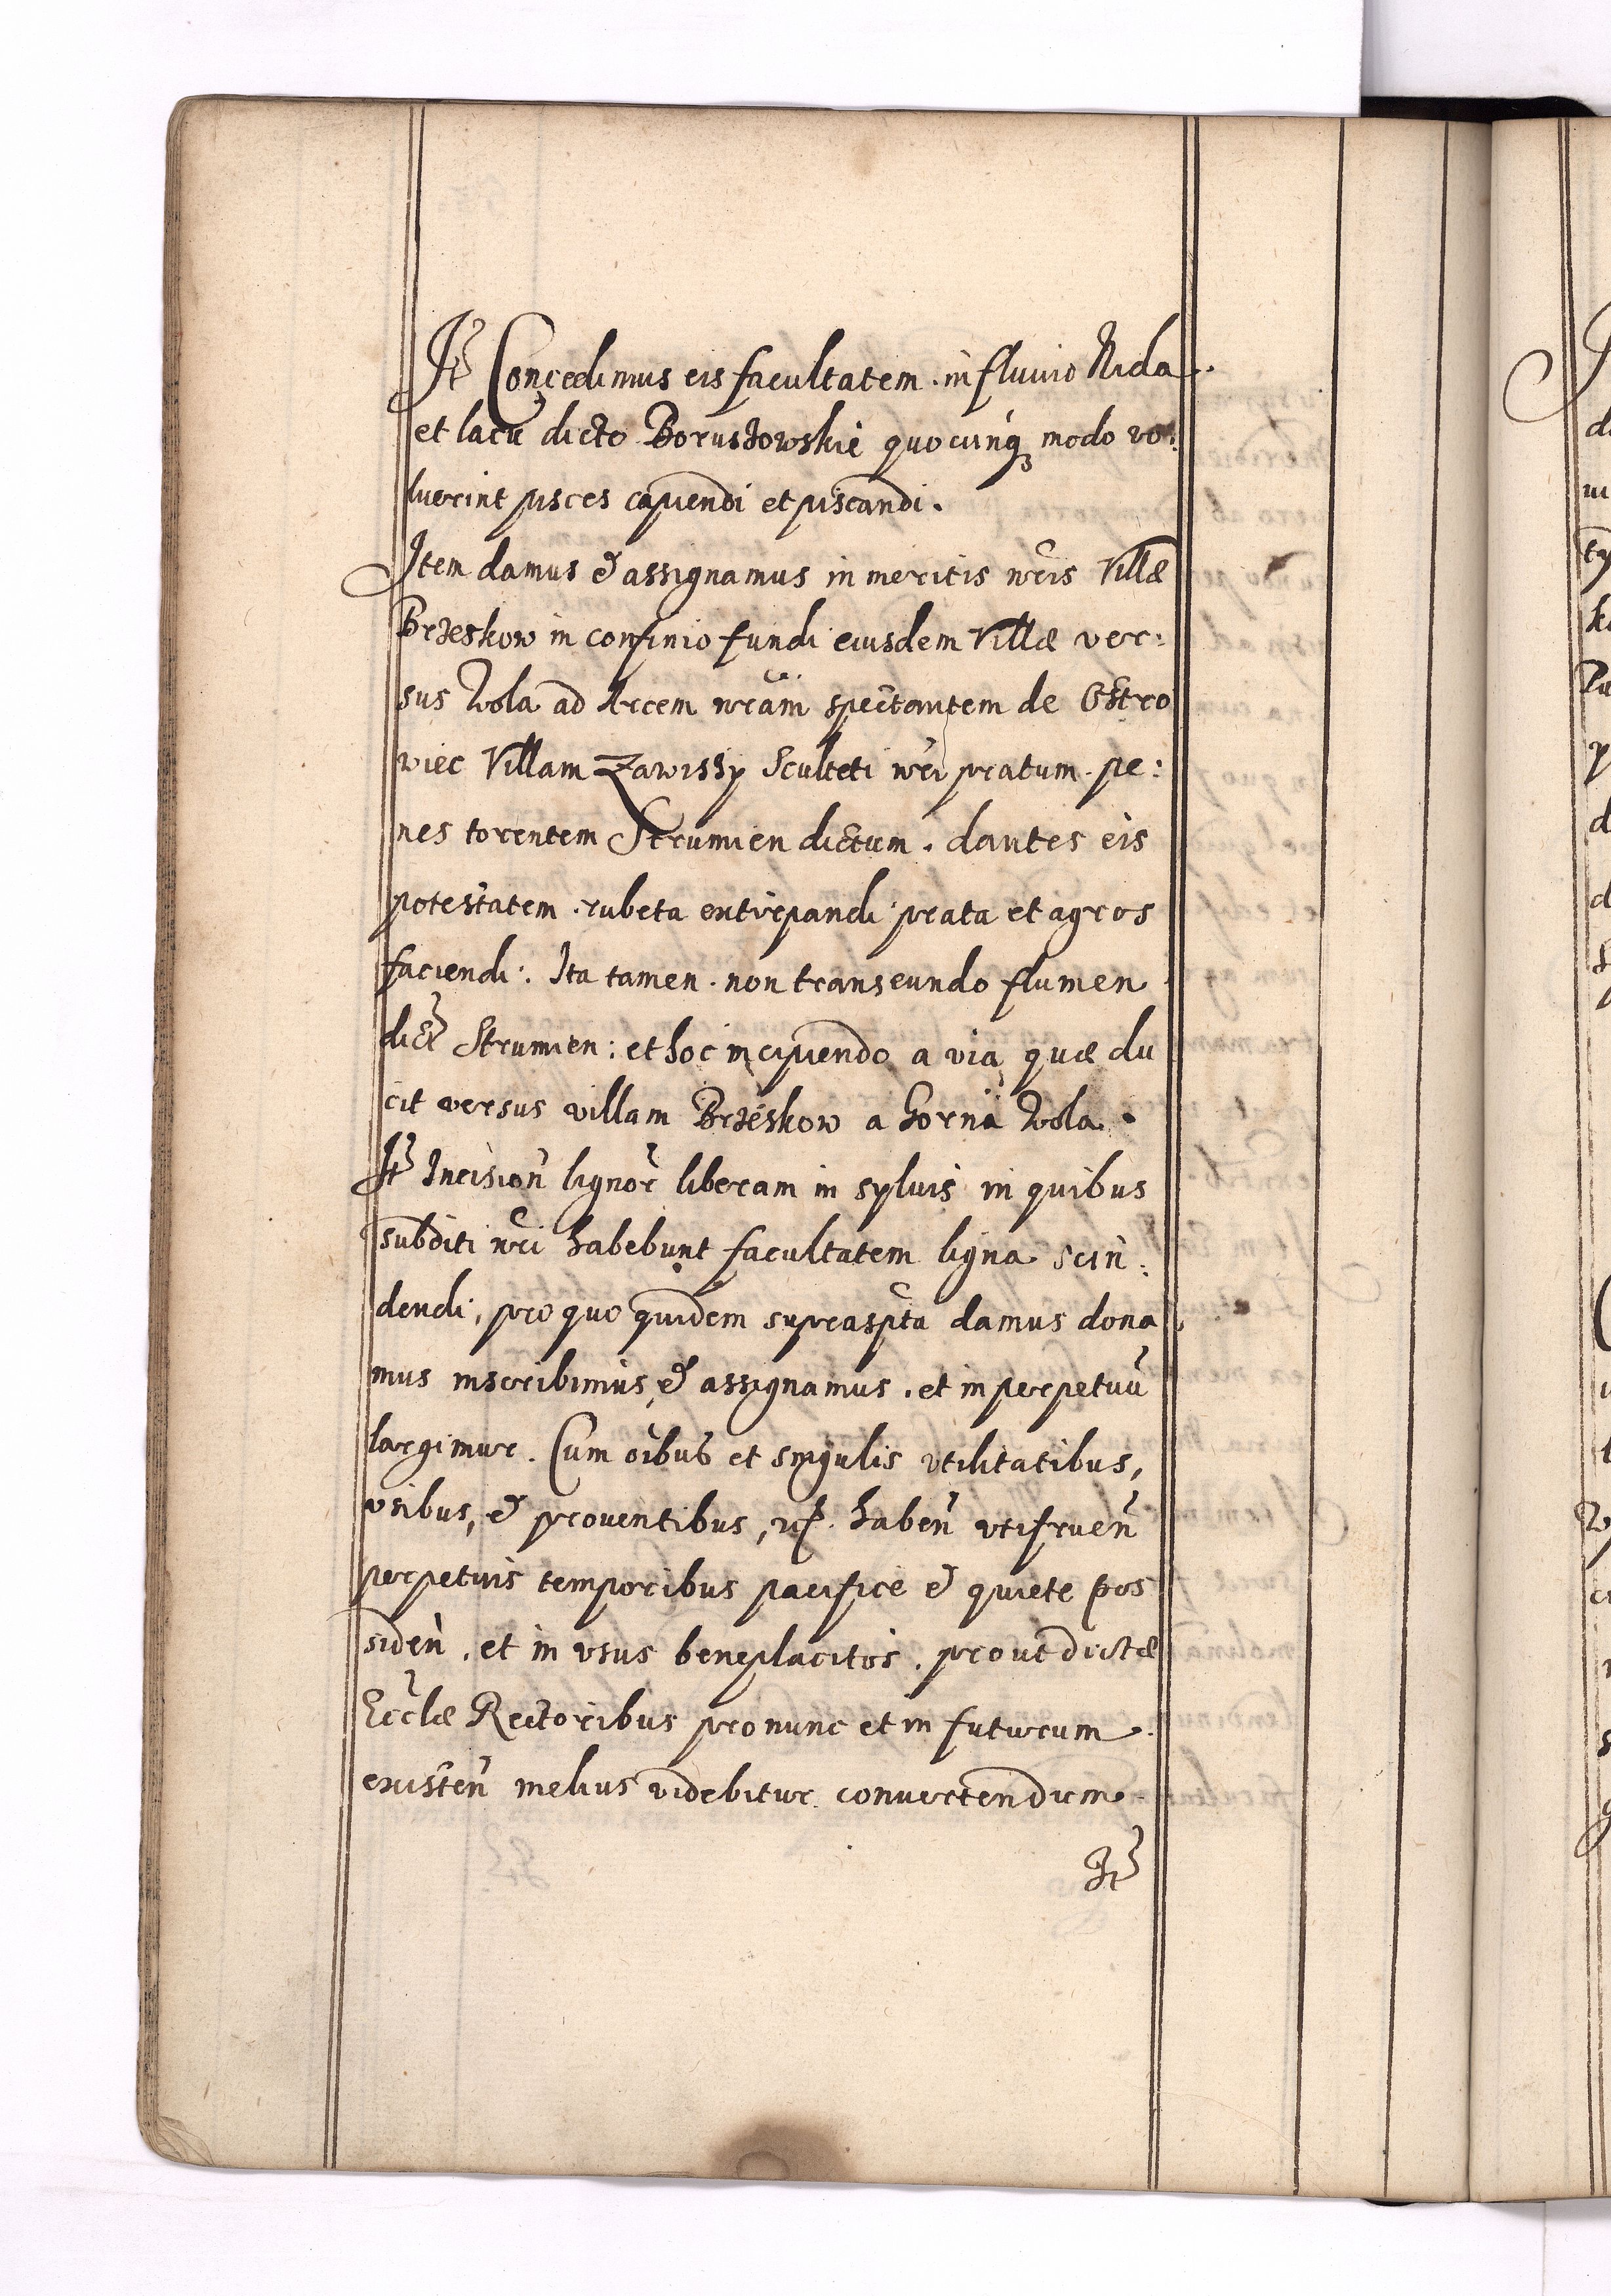 Itẽ Concedimus eis facultatem in fluuio Nida.
et lacu dicto Boruszowskie quocunq modo vo:
luerint pisces capiendi et piscandi.
Item damus & assignamus in meritis nr̃is Villæ
Brzeskow in confinio fundi eiusdem Villæ ver:
sus Wola ad Arcem nrãm spectantem de Ostro
wiec Villam Zawissÿ Sculteti nr̃i pratum pe:
nes torentem Strumien dictum. dantes eis
potestatem rubeta extirpandi prata et agros
faciendi: Ita tamen. non transeundo flumen
dictũ Strumien: et hoc incipiendo a via quæ du
cit versus villam Brzeskow a Gorna Wola.
Itẽ Incision̄ lignor̄ liberam in syluis in quibus
subditi nr̃i habebunt facultatem ligna scin:
dendi, pro quo quidem suprasp̃ta damus dona
mus inscribimus & assignamus. et in perpetuū
largimur. Cum oĩbus et singulis vtilitatibus,
vsibus, & prouentibus, haben̄ vtifruen̄
perpetuis temporibus pacifice & quiete pos
siden̄. et in vsus beneplacitos. prout dictæ
Eccłæ Rectoribus pro nunc et in futurum
existen̄ melius videbitur conuertendum
Itẽ